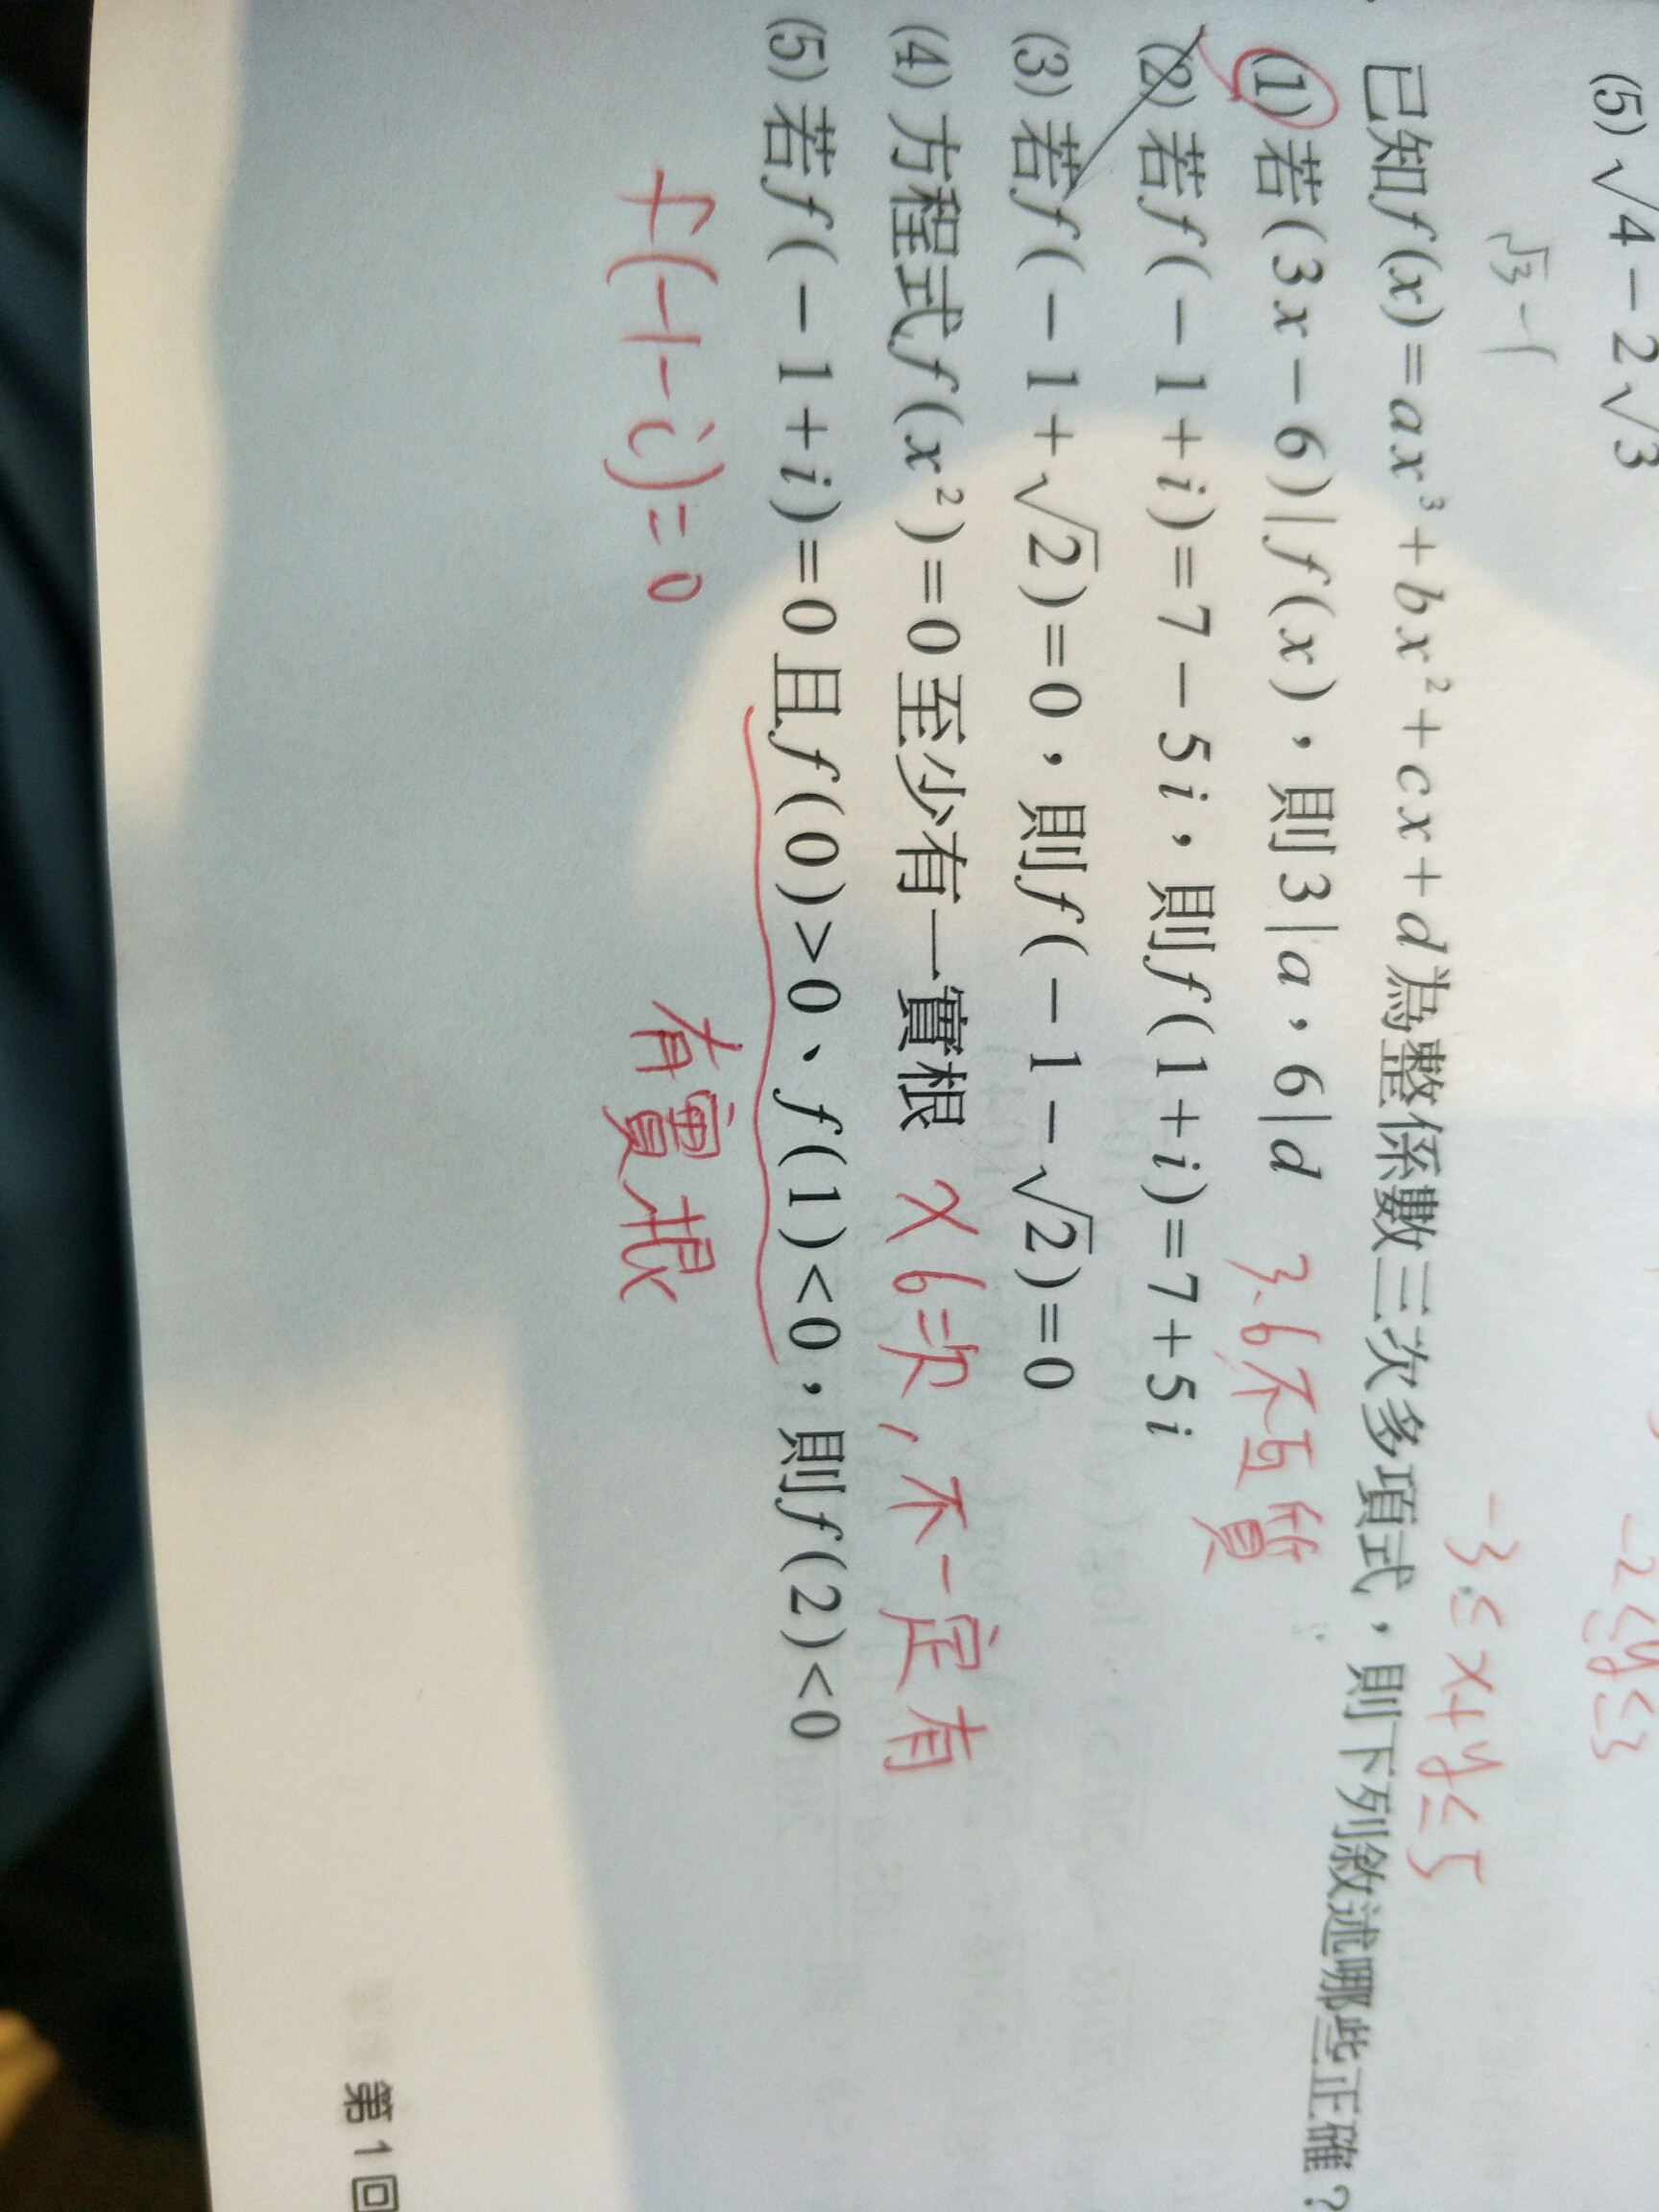 (5)√4-2√3
√3-1
-2≤y≤3
-3≤x+y≤5
已知f(x)=ax³+bx²+cx+d為整係數三次多項式,則下列敘述哪些正確?
(1)若(3x-6)|f(x),則3|a,6|d 3、6不互質
(2)若f(-1+i)=7-5i,則f(1+i)=7+5i
(3)若f(-1+√2)=0,則f(-1-√2)=0
(4)方程式f(x²)=0至少有一實根 X 6次,不一定有
(5)若f(-1+i)=0且f(0)>0、f(1)<0,則f(2)<0
f(-1-i)=0 有實根
第1回